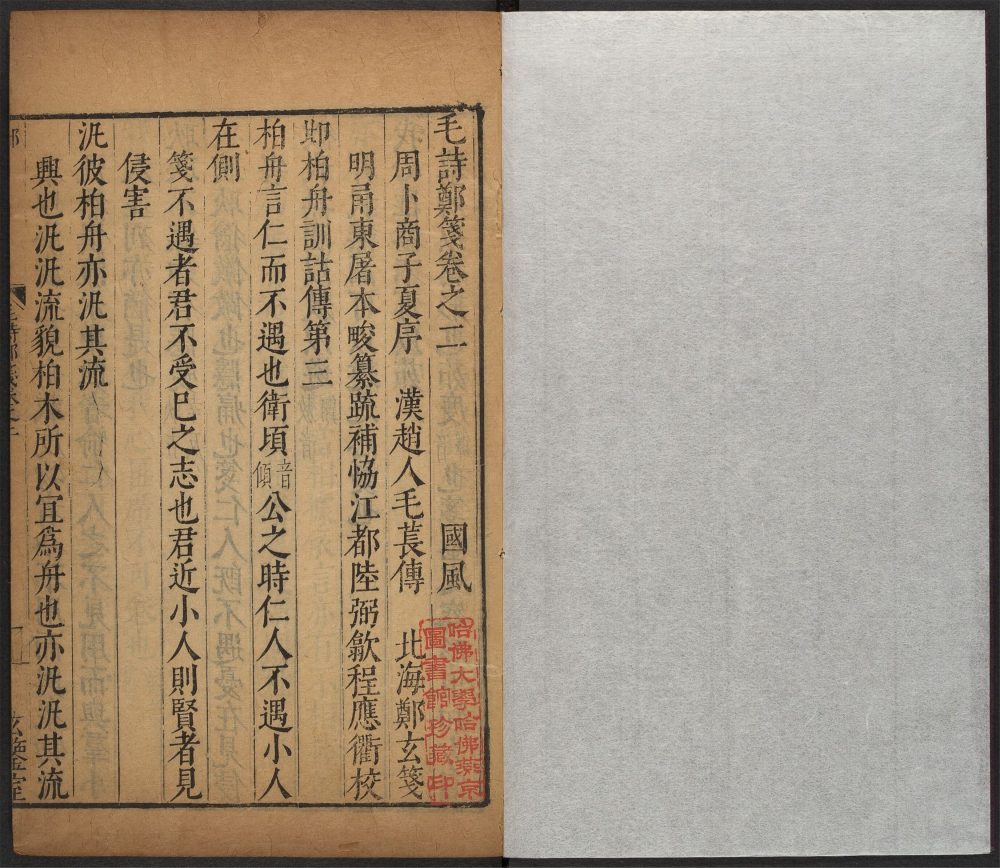 毛詩鄭箋卷之二 國風
周卜商子夏序 漢趙人毛萇傳 北海鄭玄箋
明甬東屠本畯纂疏補恊江都陸弼歙程應衢校
邶柏舟訓詁傳第三
柏舟言仁而不遇也衛頃音傾公之時仁人不遇小人
在側
箋不遇者君不受巳之志也君近小人則賢者見
侵害
汎彼柏舟亦汎其流
興也汎汎流貌柏木所以冝爲舟也亦汎汎其流
玄鑒室
哈佛大學哈佛燕京
圖書館珍藏印